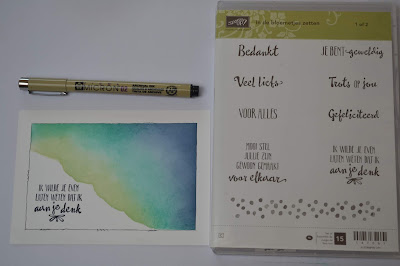 In de bloemetjes zetten
1 of 2
Bedankt
JE BENT geweldig
Veel liefs
Trots op jou
VOOR ALLES
Gefeliciteerd
MOOI STEL
JULLIE ZIJN
GEWOON GEMAAKT
voor elkaar
IK WILDE JE EVEN
LATEN WETEN DAT IK
aan je denk
15
MICRON
IK WILDE JE EVEN
LATEN WETEN DAT IK
aan je denk